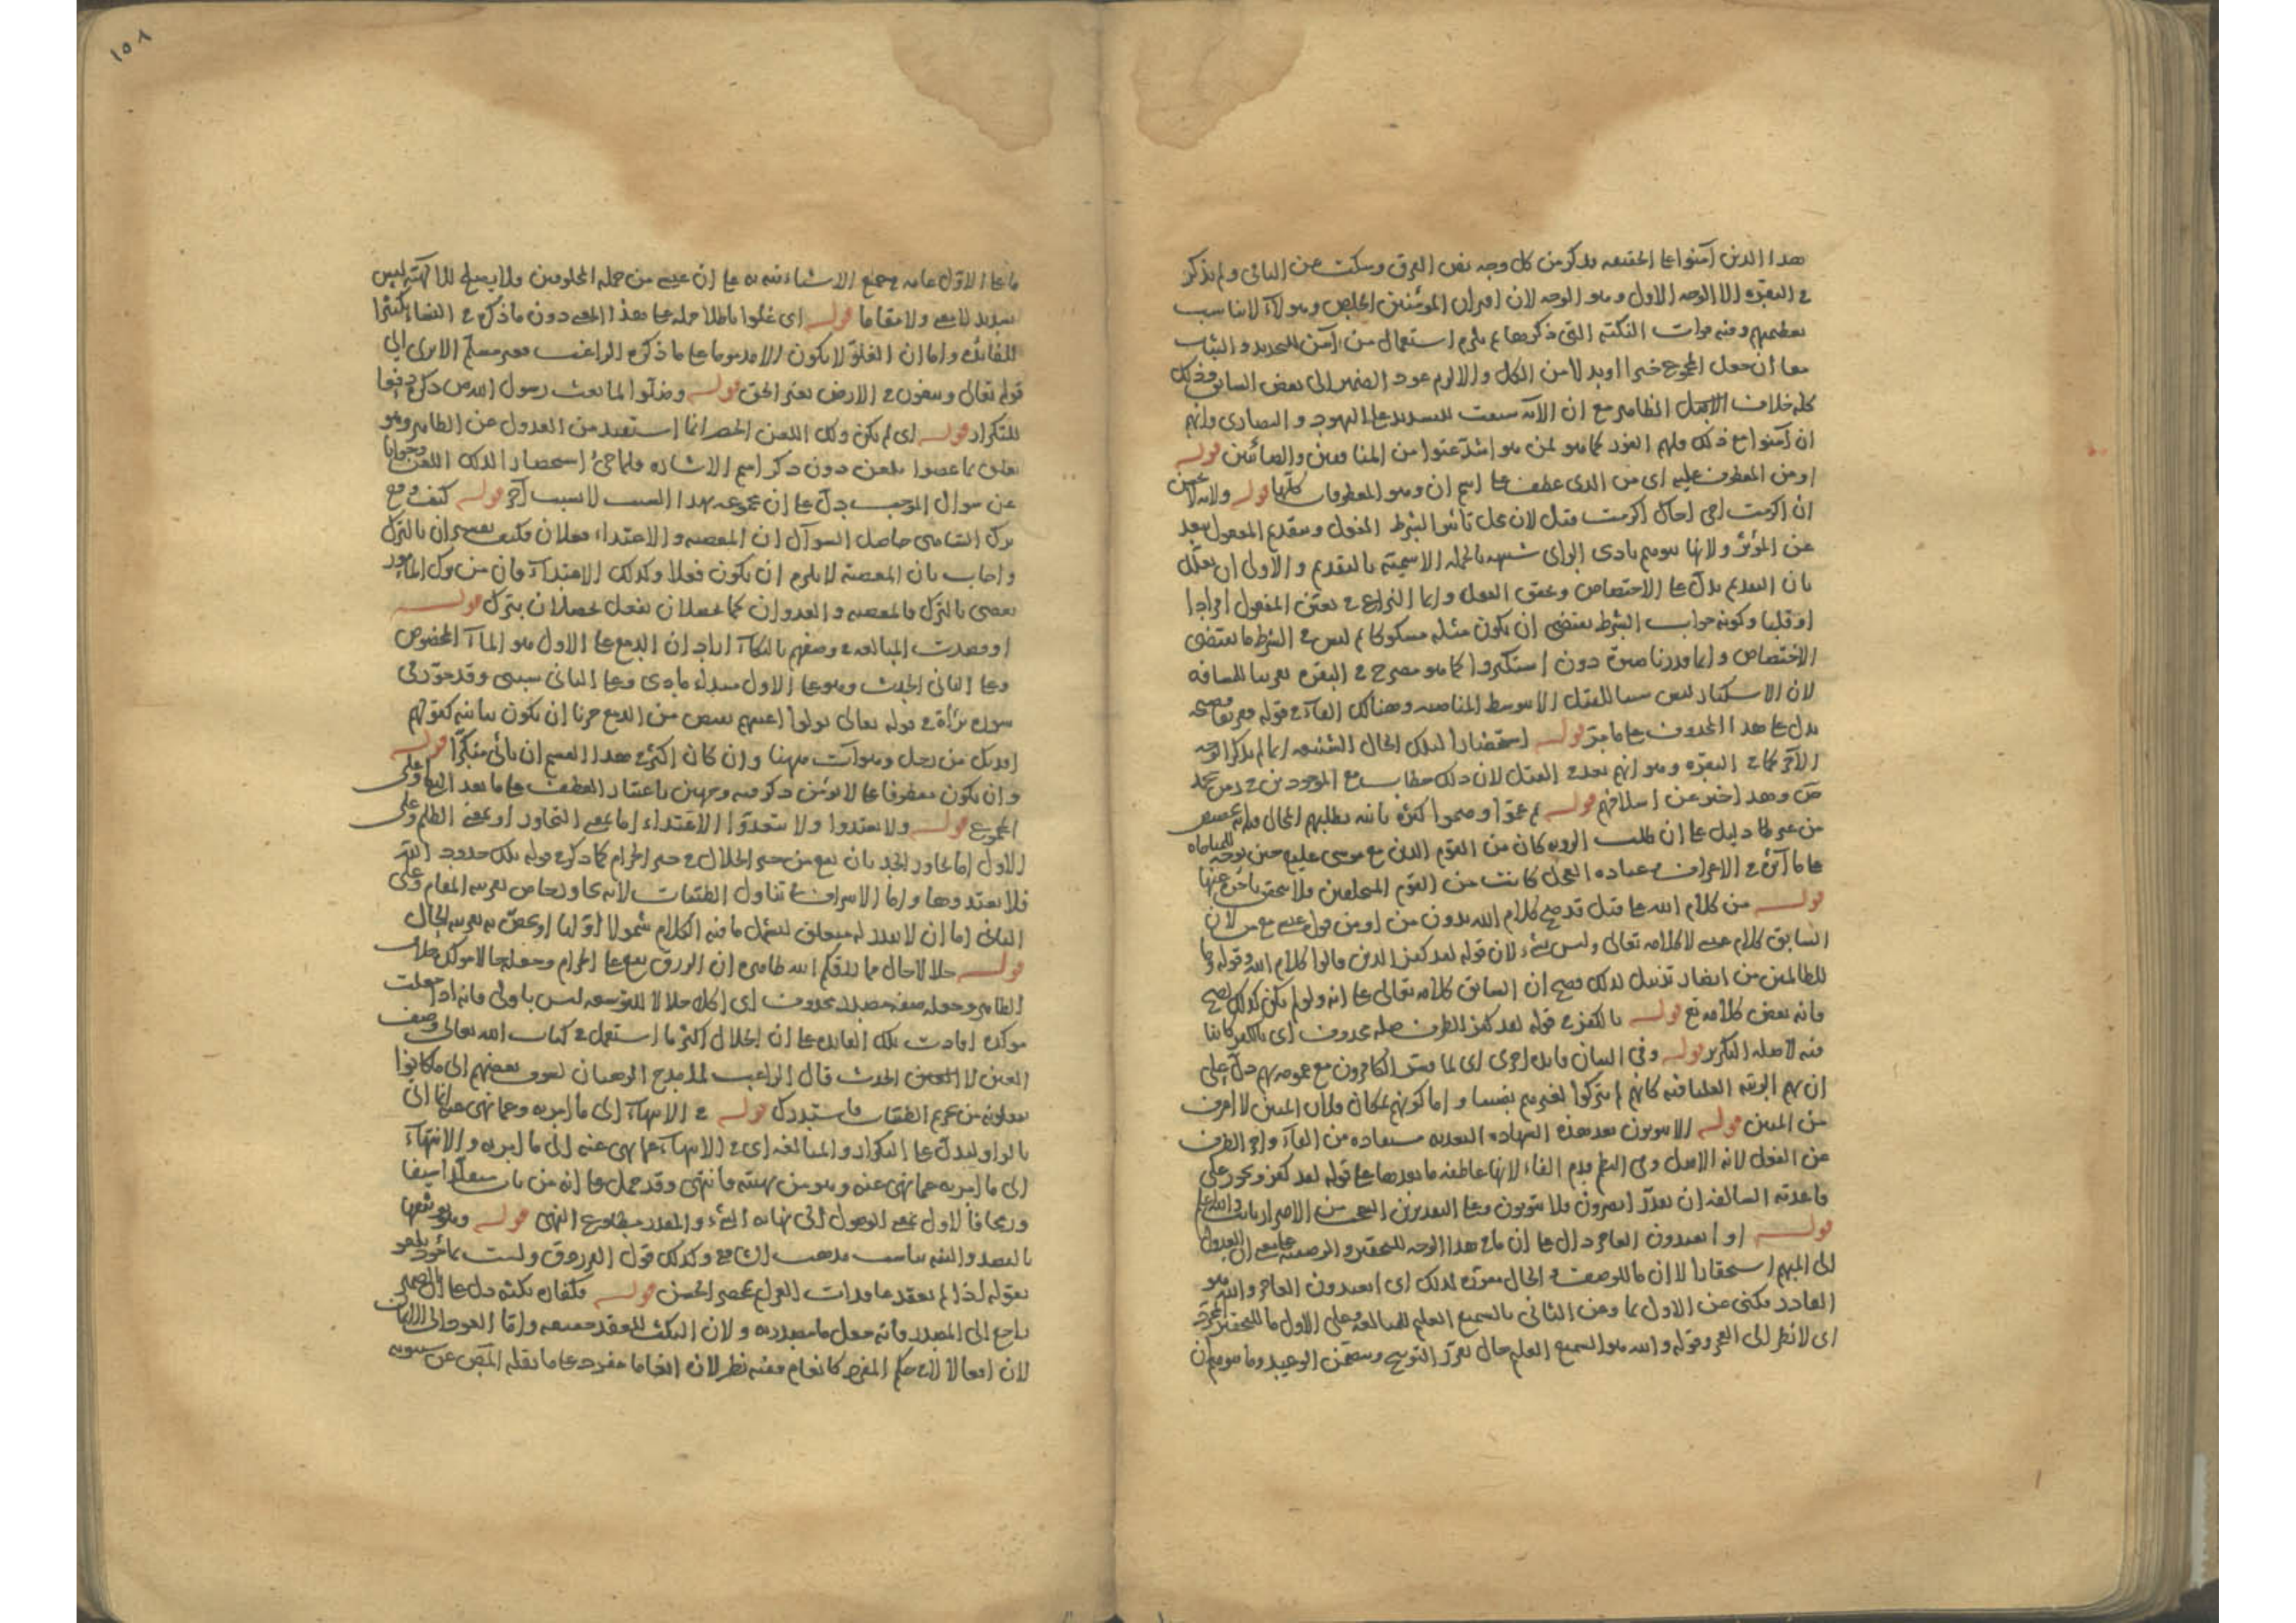 هذا الذين آمنوا على الحقيقة يذكر من كل وجه بعض الفرق وسكت عن الباقي ولم يذكر
في البقرة الا الوجه الاول وهو الوجه لان اقتران المؤمنين الخلص وهؤلاء لا يناسب
تعظيمهم وفيه فوات النكتة التي ذكرها ثم يلزم استعمال من آمن للتجديد والثبات
معا ان جعل المجموع خبرا او بدلا من الكل والا لزم عود الضمير الى بعض السابق وذلك
كله خلاف الاصل الظاهر مع ان الآية سيقت للتشديد على اليهود والنصارى وانهم
ان آمنوا مع ذلك فلهم الفوز كما هو لمن هو اشد عتوا من المنافقين والصابئين قوله
او من المعطوف عليه اي من الذي عطف على اسم ان وهو المعطوفات كلها قوله ولانه لا يحسن
ان اكرمت اخي اخاك اكرمت قيل لان محل تأثير الشرط الفعل وبتقديم المفعول يبعد
عن المؤثر ولانها يوهم بادى الراى شبهه بالجملة الاسمية بالتقديم والاولى ان يعلل
بان التقديم يدل على الاختصاص وتحقق الفعل وانما النزاع في تعيين المفعول افرادا
او قلبا وكونه جواب الشرط يقتضى ان يكون مثله مشكوكا ثم ليس في الشرط ما يقتضى
الاختصاص وانما قدرنا دون استكبروا كما هو مصرح في البقرة تقريبا للمسافة
لان الاستكبار ليس سببا للقتل الا بتوسط المناصبة وهنالك الفاء في قوله ففريقا فصيحة
يدل على هذا المحذوف على ما مر قوله استحضارا لتلك الحال الشنيعة انما لم يذكر الوجه
الآخر كما في البقرة وهو انهم بعد في القتل لان ذلك خطاب مع الموجودين في زمن محمد
ص وهذا اخبر عن اسلافهم قوله ثم عموا وصموا كرة ثانية بطلبهم المحال
من غير دليل على ان طلب الرؤية كان من القوم الذين مع موسى عليه حين توجه للمناجاة
على ما آثر في الاعراف وعبادة العجل كانت من القوم المتخلفين فلا يتحقق تأخر عنها
قوله من كلام الله على قيل قد صح كلام الله بدون من او من قول عيسى مع من لان
السابق كلام عيسى لا كلامه تعالى وليس بشيء لان قوله لقد كفر الذين قالوا كلام الله وقوله وما
للظالمين من انصار تذييل لذلك فصح ان السابق كلامه تعالى على انه ولو لم يكن كذلك لصح
فانه بعض كلامه تع قوله بالكفر في قوله لقد كفر الظرف صلة محذوف اي بالكفر كائنا
فيه لا صلة التكرير قوله وفي البيان فائدة اخرى اي لما فسر الكافرون مع عمومه بهم دل على
ان لهم الرتبة العليا فيه كانهم لم يتركوا لغيرهم نصيبا واما كونهم بمكان فلان المبين لا اعرف
من المبين قوله الا يتوبون بعد هذه الشهادة البعدية مستفادة من الفاء واخر الظرف
عن الفعل لانه الاصل وفي النظم قدم الفاء لانها عاطفة ما بعدها على قوله لقد كفر ويجوز على
قاعدته السالفة ان يقدر ايصرون فلا يتوبون وعلى التقديرين التعجب من الاصرار
قوله او اتعبدون العاجز دال على ان ما في هذا الوجه للتحقير والوصفية
الى المبهم استحقارا لا ان ما للوصف والحال مقررة لذلك اي اتعبدون العاجز والله هو
القادر فكنى عن الاول بما وعن الثاني بالسميع العليم للمبالغة وعلى الاول ما للتحقير المجرد
اي لا نظر الى العجز وقوله والله هو السميع العليم حال يقرر التوبيخ ويتضمن الوعيد وما يتوهم ان
١٥٨
ما على الاول عامة في جميع الاشياء تنبيه على ان عيسى من جملة المخلوقين ولا يصلح للالهية ليس
بسديد لا معنى ولا مقاما قوله اي غلوا باطلا حمله على هذا المعنى دون ما ذكر في النساء تكثيرا
للفائدة واما ان الغلو لا يكون الا مذموما على ما ذكره الراغب فغير مسلم الا يرى الى
قوله تعالى ويبغون في الارض بغير الحق قوله وضلوا لما بعث رسول الله ص ذكره دفعا
للتكرار قوله اي لم يكن ذلك اللعن الحصر انما استفيد من العدول عن الظاهر وهو
تعلق بما عصوا بلعن دون ذكر اسم الاشارة فلما جئ استحضارا لذلك اللعن وجوابا
عن سؤال الموجب دل على ان مجموعه بهذا السبب لا بسبب آخر قوله كيف وقع
ترك التناهي حاصل السؤال ان المعصية والاعتداء فعلان فكيف يفسران بالترك
واجاب بان المعصية لا يلزم ان يكون فعلا وكذلك الاعتداء فان من ترك المأمور
يعصى بالترك فالمعصية والعدوان كما يحصلان بفعل يحصلان بترك قوله
او قصدت المبالغة في وصفهم بالبكاء اراد ان الدمع على الاول هو الماء المخصوص
وعلى الثاني الحدث وهو على الاول مبدأ مادى وعلى الثاني سببى وقد جوز في
سورة براءة في قوله تعالى تولوا واعينهم تفيض من الدمع حزنا ان يكون بيانية كقولهم
افديك من رجل وهو آت ههنا وان كان اكثر في هذا القسم ان يأتي منكرا قوله
وان يكون معطوفا على لا نؤمن ذكر فيه وجهين باعتبار العطف على ما بعد النفي وعلى
المجموع قوله ولا تعتدوا ولا تتعدوا الاعتداء اما بمعنى التجاوز او بمعنى الظلم وعلى
الاول اما تجاوز الحد بان يقع من حيز الحلال في حيز الحرام كما ذكر في قوله تلك حدود الله
فلا تعتدوها واما الاسراف في تناول الطيبات لانه تجاوز خاص بقرينة المقام وعلى
الثاني اما ان لا يقدر له متعلق ليشمل ما فيه الكلام شمولا اوليا او يخص به بقرينة الحال
قوله حلالا حال مما رزقكم الله ظاهره ان الرزق يقع على الحرام وجعلها حالا مؤكدة خلاف
الظاهر وجعله صفة مصدر محذوف اي اكلا حلالا للتوسعة ليس باولى فانه اذا جعلت
مؤكدة افادت تلك الفائدة على ان الحلال اكثر ما استعمل في كتاب الله تعالى وصف
العين لا الحدث قال الراغب لما مدح الرهبان
من تحريم الطيبات فاستدرك قوله في الانتهاء الى ما امر به وعما نهى عنه الى
بالواو ليدل على التكرار والمبالغة اي في الانتهاء عما نهى عنه الى ما امر به والانتهاء
الى ما امر به عما نهى عنه وهو من نهيته فانتهى وقد حمل على انه من باب
فالاول بمعنى الوصول الى نهاية الشيء والمقدر مطاوع النهي قوله وهو توثيقها
بالقصد والنية يناسب مذهب الشافعي وكذلك قول الفرزدق ولست بمأخوذ بلغو
تقوله اذا لم تعقد عاقدات العزائم بمحضر الحسن قوله فكفارة نكثه دل على ان الضمير
راجع الى المصدر فانه جعل ما مصدرية ولان النكث للعقد حقيقة واما العود الى الايمان
لان افعالا في حكم المفرد كانعام ففيه نظر لان انعاما مفرد على ما نقله المص عن سيبويه